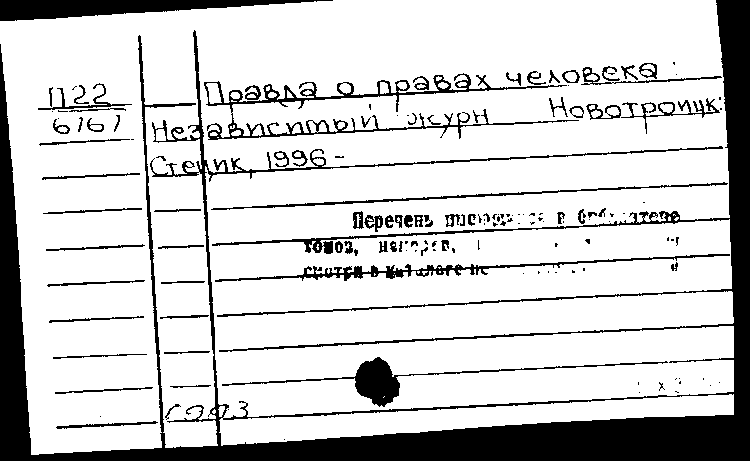 П22 Правда о правах человека :
6767 Независимый журн Новотроицк:
Стецик, 1996 -
Перечень в библиотеке
томов, номеров,
смотри в каталоге